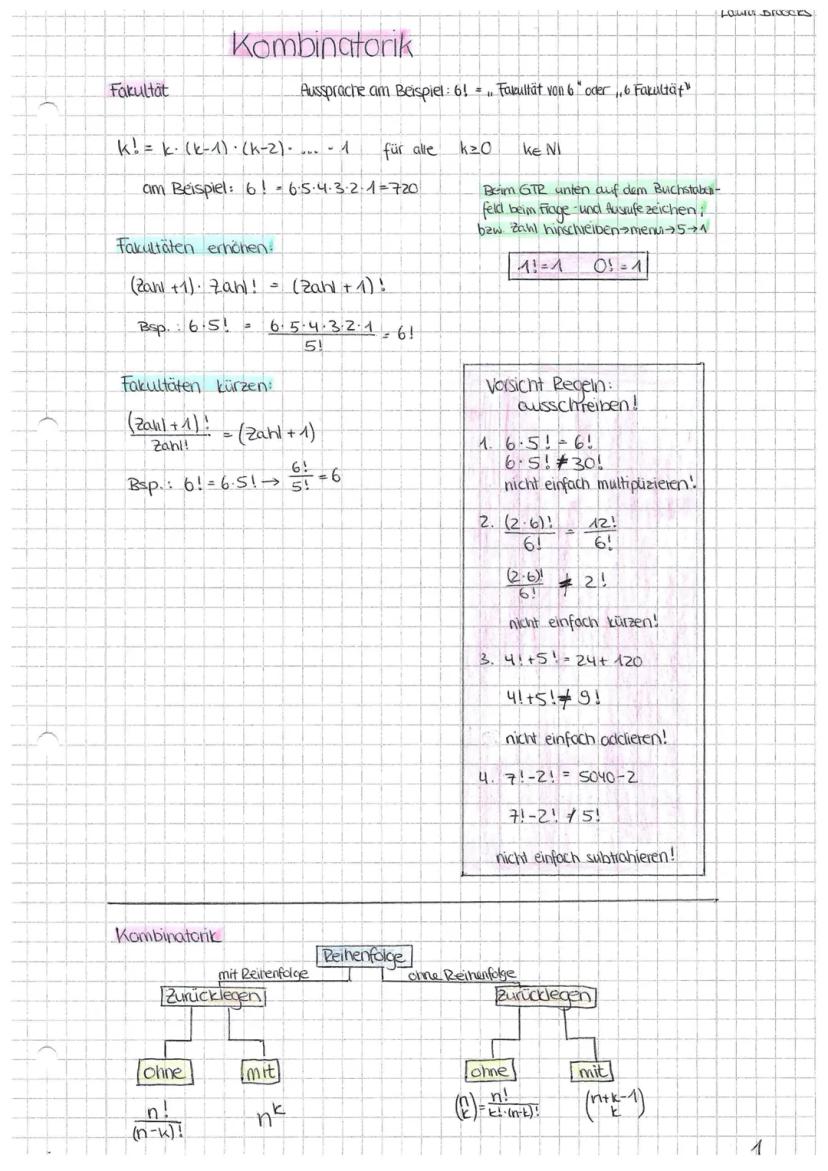 Kombinatorik
Fakultät Aussprache am Beispiel: 6! = „ Fakultät von 6" oder „6 Fakultät"
k! = k · (k-1) · (k-2) · ... · 1 für alle k≥0 k∈ℕ
am Beispiel: 6! = 6·5·4·3·2·1=720
Beim GTR unten auf dem Buchstaben-
feld beim Frage- und Ausrufezeichen;
bzw. Zahl hinschreiben→menu→5→1
1!=1 0!=1
Fakultäten erhöhen:
(Zahl +1) · Zahl! = (Zahl +1)!
Bsp.: 6·5! = 6·5·4·3·2·1 / 5! = 6!
Fakultäten kürzen:
(Zahl+1)! / Zahl! = (Zahl +1)
Bsp.: 6! = 6·5! → 6!/5! = 6
Vorsicht Regeln:
ausschreiben!
1. 6·5! = 6!
6·5! ≠ 30!
nicht einfach multiplizieren!
2. (2·6)!/6! = 12!/6!
(2·6)!/6! ≠ 2!
nicht einfach kürzen!
3. 4!+5! = 24+120
4!+5! ≠ 9!
nicht einfach addieren!
4. 7!-2! = 5040-2
7!-2! ≠ 5!
nicht einfach subtrahieren!
Kombinatorik
Reihenfolge
mit Reihenfolge ohne Reihenfolge
Zurücklegen Zurücklegen
ohne mit ohne mit
n!/(n-k)! n^k (n k) = n!/k!·(n-k)! (n+k-1 k)
1